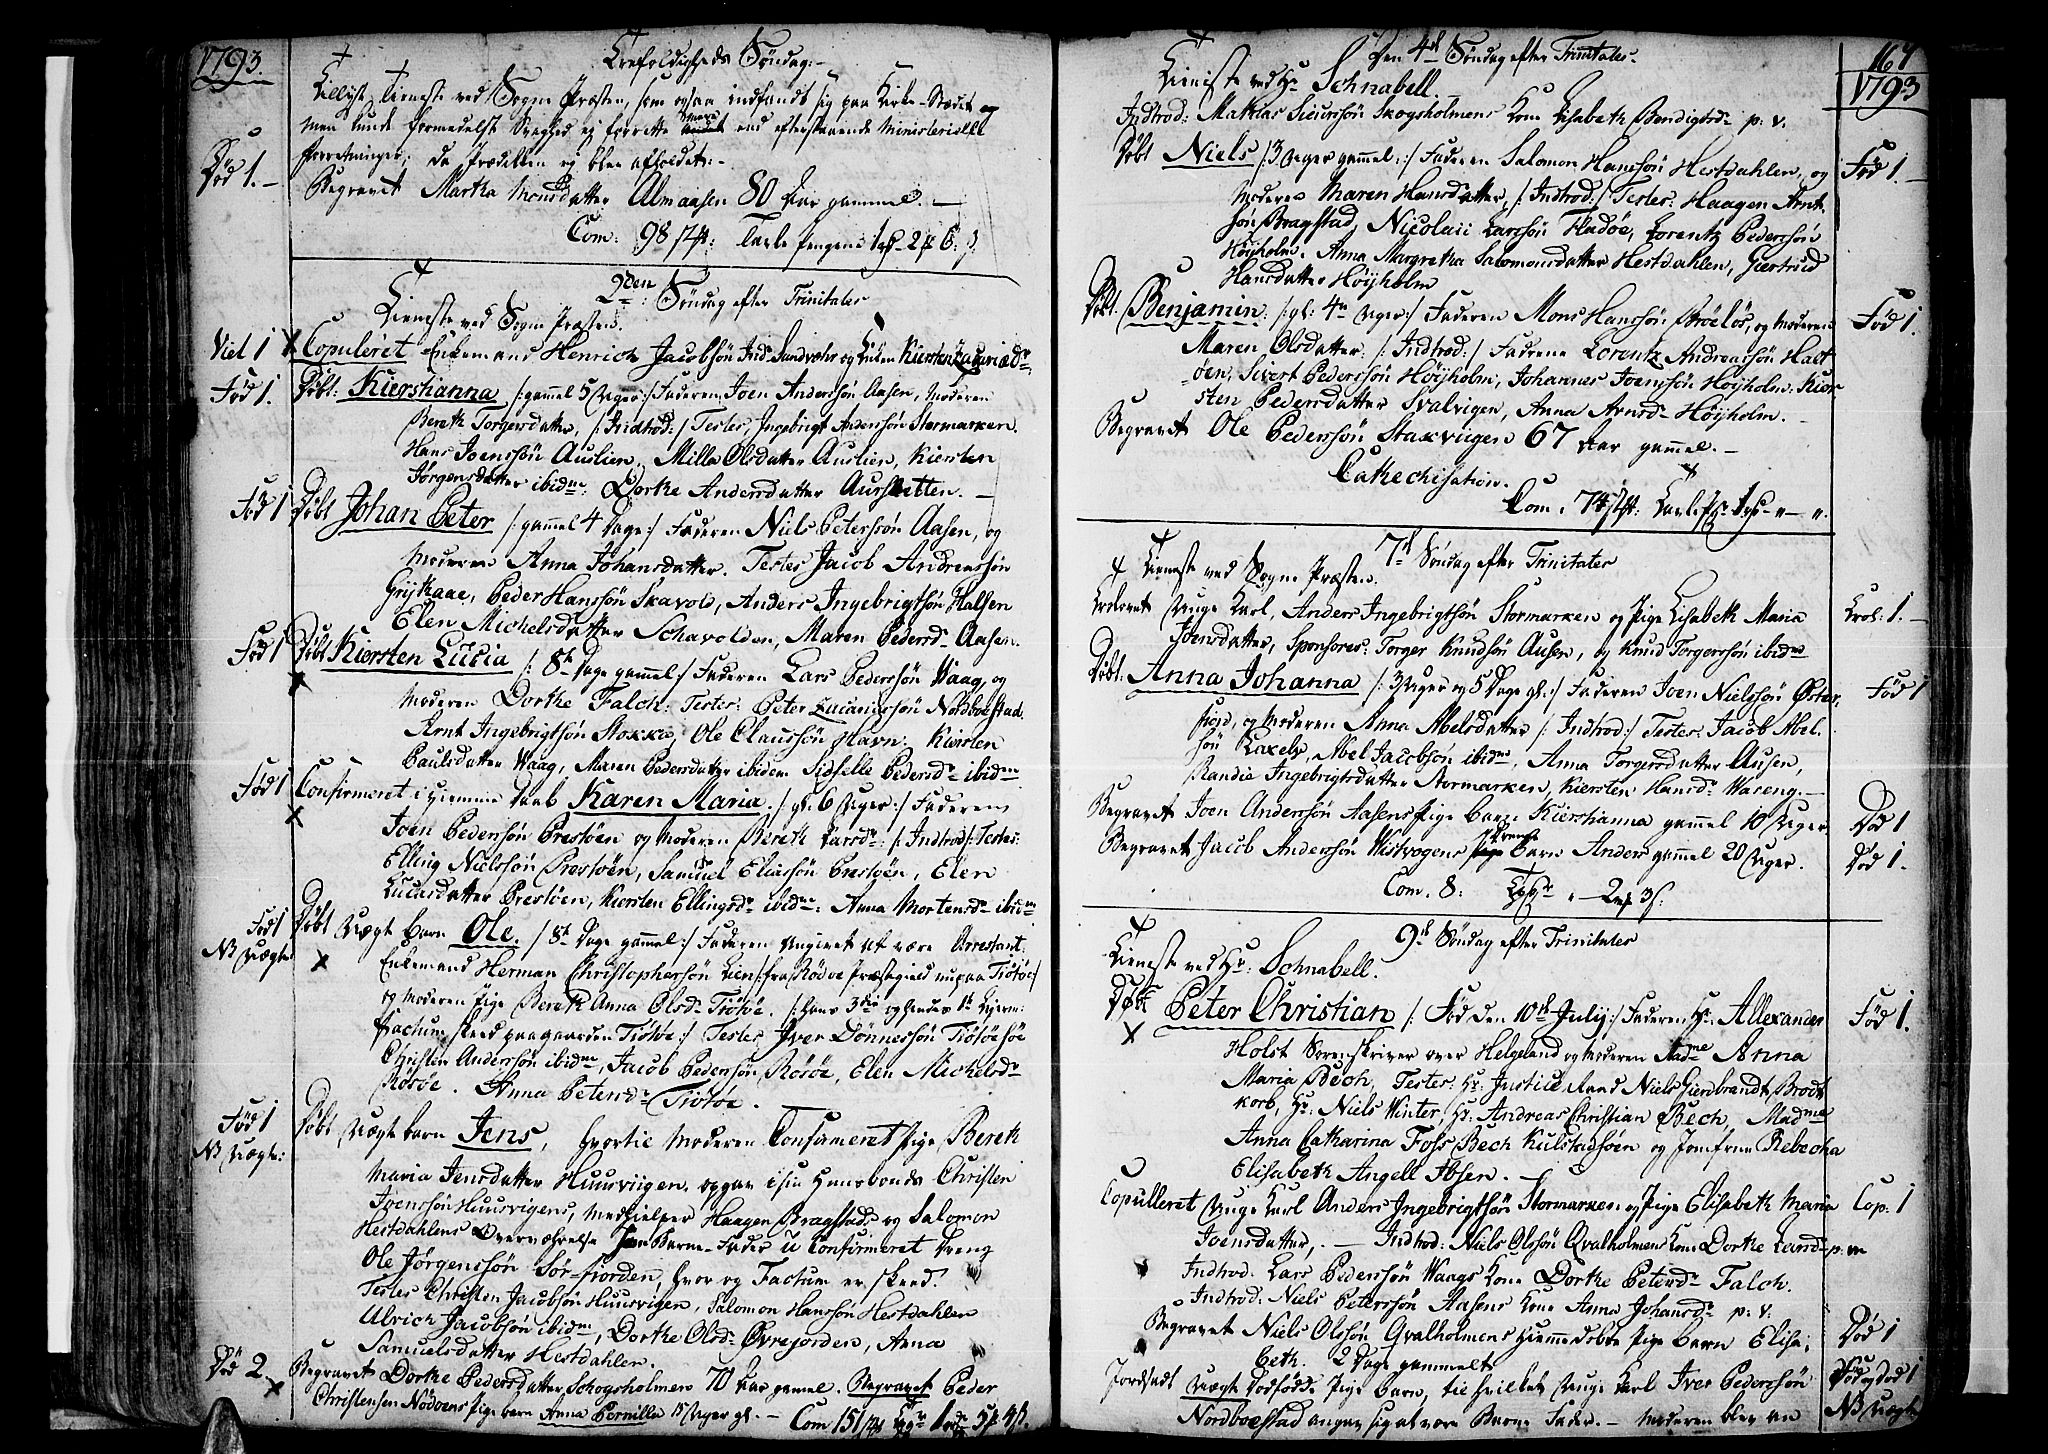 1793.
Trefoldigheds Søndag:
Tillyst tieneste ved Sogne Præsten, som ogsaa indfandt sig paa Kirke-Stædet og
men kunde formedelst Svaghed ej forrette meere end efterstaaende Ministerielle
forretninger; da Prædiken ej blev afholdet:-
Død 1. Begravet Martha Monsdatter Almaasen 80 Aar gammel.
Com: 98
2den Søndag efter Trinitates
Tieneste ved Sogne Præsten.
Viel 1 Copuleret Enkemand Henrich Jacobsøn Ind: Sandvohr og Enken Kiersten Zacariædr
Fød 1. Døbt: Kierstianna /: gammel 5 Uger :/ Faderen Joen Andersøn Aasen, Moderen
Bereth Torgersdatter, /: Indtrod :/ Testes, Ingebrigt Andersøn Stormarken.
Hans Joensøn Auslien, Milla Olsdatter Auslien, Kiersten
Jørgensdatter ibidm: Dorthe Andersdatter Aursletten.
Fød 1 Døbt Johan Peter /: gammel 4 Dage :/ Faderen Niels Petersøn Aasen, og
Moderen Anna Johansdatter. Testes Jacob Andreassøn
Grythaae, Peder Hanssøn Skavold, Anders Ingebrigtsøn Halsen
Elen Michelsdatter Schavolden, Maren Pedersd. Aasen.
Fød 1 Døbt Kiersten Lucia /: 8te Dage gammel :/ Faderen Lars Pedersøn Waag, og
Moderen Dorthe Falch. Testes: Peter Zacariæsøn Nordboestad.
Arnt Ingebrigtsøn Stokka, Ole Claussøn Havn. Kiersten
Paulsdatter Waag, Maren Pedersdatter ibidem Sidselle Pedersdr ibidm
Fød 1 Confirmeret hiemme Daab Karen Maria. /: gl: 6 Uger :/ Faderen
Joen Pedersøn Prestøen og Moderen Bereth Larsdr: /: Indtrod :/ Testes:
Elling Nielssøn Prestøen, Samuel Eliasøn Prestøen, Elen
Lucasdatter Prestøen, Kiersten Ellingsdr ibidm: Anna Mortensdr ibidm
Fød 1 Døbt Uægte barn Ole. /: 8te Dage gammel :/ Faderen Angivet at være Arrestant:
NB Uægte Enkemand Herman Christophersøn Lien /: fra Rødøe Præstegield nu paa Tiøtøe :/
og Moderen Pige Bereth Anna Olsdr Tiøtøe. /: Hans 3die og hendes 1te Lejerm:
factum skeed paa gaarden Tiøtøe :/ Testes Iver Dønnesøn Tiøtøe søe
Christen Andersøn ibidm, Jacob Pedersøn Rosøe, Elen Mickelsdr
Rosøe. Anna Petersdr Tiøtøe.
Fød 1 Døbt Uægte barn Jens, hvortil Moderen Confirmeret Pige Bereth
NB Uægte: Maria Jensdatter Huusviigen, opgav i sin Huusbonds Christen
Joensøn Huusvigens, medhielper Haagen Bragstads og Salomon
Hestdahlens Overværelse Barne-Fader u Confirmeret Dreng
Ole Jørgenssøn Sør-fjorden, hvor og Factum er skeed.
Testes Christen Jacobsøn Huusvigen, Salomon Hanssøn Hestdahlen
Ulrich Jacobsøn ibidm, Dorthe Olsdr Øvrejorden, Anna
Samuelsdatter Hestdahlen.
Død 2 Begravet Dorthe Pedersdatter Schogsholmen 70 Aar gammel. Begravet Peder
Christensen Nødoens Pige barn Anna Pernilla 15 Uger gl.- Com 151
Den 4de Søndag efter Trinitates.
164
1793
Tieneste ved Hr Schnabell.
Indtrod: Mathias Siversøn Skogsholmens Kone Lisabeth Bendigtsdr p: v.
Døbt Niels /: 3 Uger gammel :/ Faderen Salomon Hanssøn Hestdahlen, og Fød 1.
Moderen Maren Hansdatter, /: Indtrod :/ Testes: Haagen Arnt-
søn Bragstad, Nicolaii Larssøn Fladøe, Lorentz Pederssøn
Høyholm. Anna Margretha Salomonsdatter Hestdahlen, Giertrud
Hansdatter Høyholm
Døbt. Benjamin: /: gl: 4re Uger :/ Faderen Mons Hanssøn Brøeløs, og Moderen Fød 1.
Maren Olsdatter: /: Indtrod :/ Fadrene Lorentz Andreassøn Halt
øen, Sivert Pederssøn Høyholm, Johannes Joenssøn Høyholm. Kier
sten Pedersdatter Svalvigen, Anna Arnsdr Høyholm.
Begravet Ole Pederssøn Staxviigen 67 Aar gammel.
Cathechisation.
Com. 74
7de Søndag efter Trinitates
Tieneste ved Sogne Præsten.
Trolovet Unge Karl, Anders Ingebrigtsøn Stormarken og Pige Lisabeth Maria Trol: 1.
Joensdatter, Sponsores. Torger Knudsøn Ausen, og Knud Torgerssøn ibidm
Døbt: Anna Johanna /: 3 Uger og 5 Dage gl: :/ Faderen Joen Nielssøn Øster- Fød 1
fiord, og Moderen Anna Abelsdatter /: Indtrod :/ Testes. Jacob Abel-
søn Laxelv, Abel Jacobsøn ibidm, Anna Torgersdatter Ausen,
Randie Ingebrigtsdatter Stormarken, Kiersten Hansdr Waseng.
Begravet Joen Anderssøn Aasens Pige barn Kierstianna gammel 10 Uger Død 1
Begravet Jacob Anderssøn Wistvogens Drenge barn Anders gammel 20 Uger. Død 1.
Com. 8:
9de Søndag efter Trinitates
Tieneste ved Hr: Schnabell.
Døbt Peter Christian /: Fød den 10de July :/ Faderen Hr. Allexander Fød 1.
Holst Sorenskriver over Helgeland og Moderen Madme Anna
Maria Bech, Testes: Hr: Justice Raad Niels Gierbrandt Brodt
korb, Hr: Niels Winter, Hr: Andreas Christian Bech, Madme
Anna Catharina Foss Bech Kulstadsøen og Jomfrue Rebecha
Elisabeth Angell Ibsen.
Copulleret Unge Karl Anders Ingebrigtsøn Stormarken og Pige Elisabeth Maria Cop: 1
Joensdatter,. - Indtrod: Niels Olssøn Qvalholmens Kone Dorthe Larsdr p: m
Indtrod: Lars Pederssøn Waags Kone Dorthe Petersdr Falch.
Indtrod: Niels Peterssøn Aasens Kone Anna Johansdr p: v.
Begravet Niels Olssøn Qvalholmens Hiemmedøbte Pige barn Elisa- Død 1
beth. 2 Dage gammelt
Jordfæst uægte dødfødde Pige barn, til hvilket Unge Karl Iver Pederssøn Fød og død 1
Nordboestad angav sig at være Barne Fader.- Moderen blev an NB Uægte